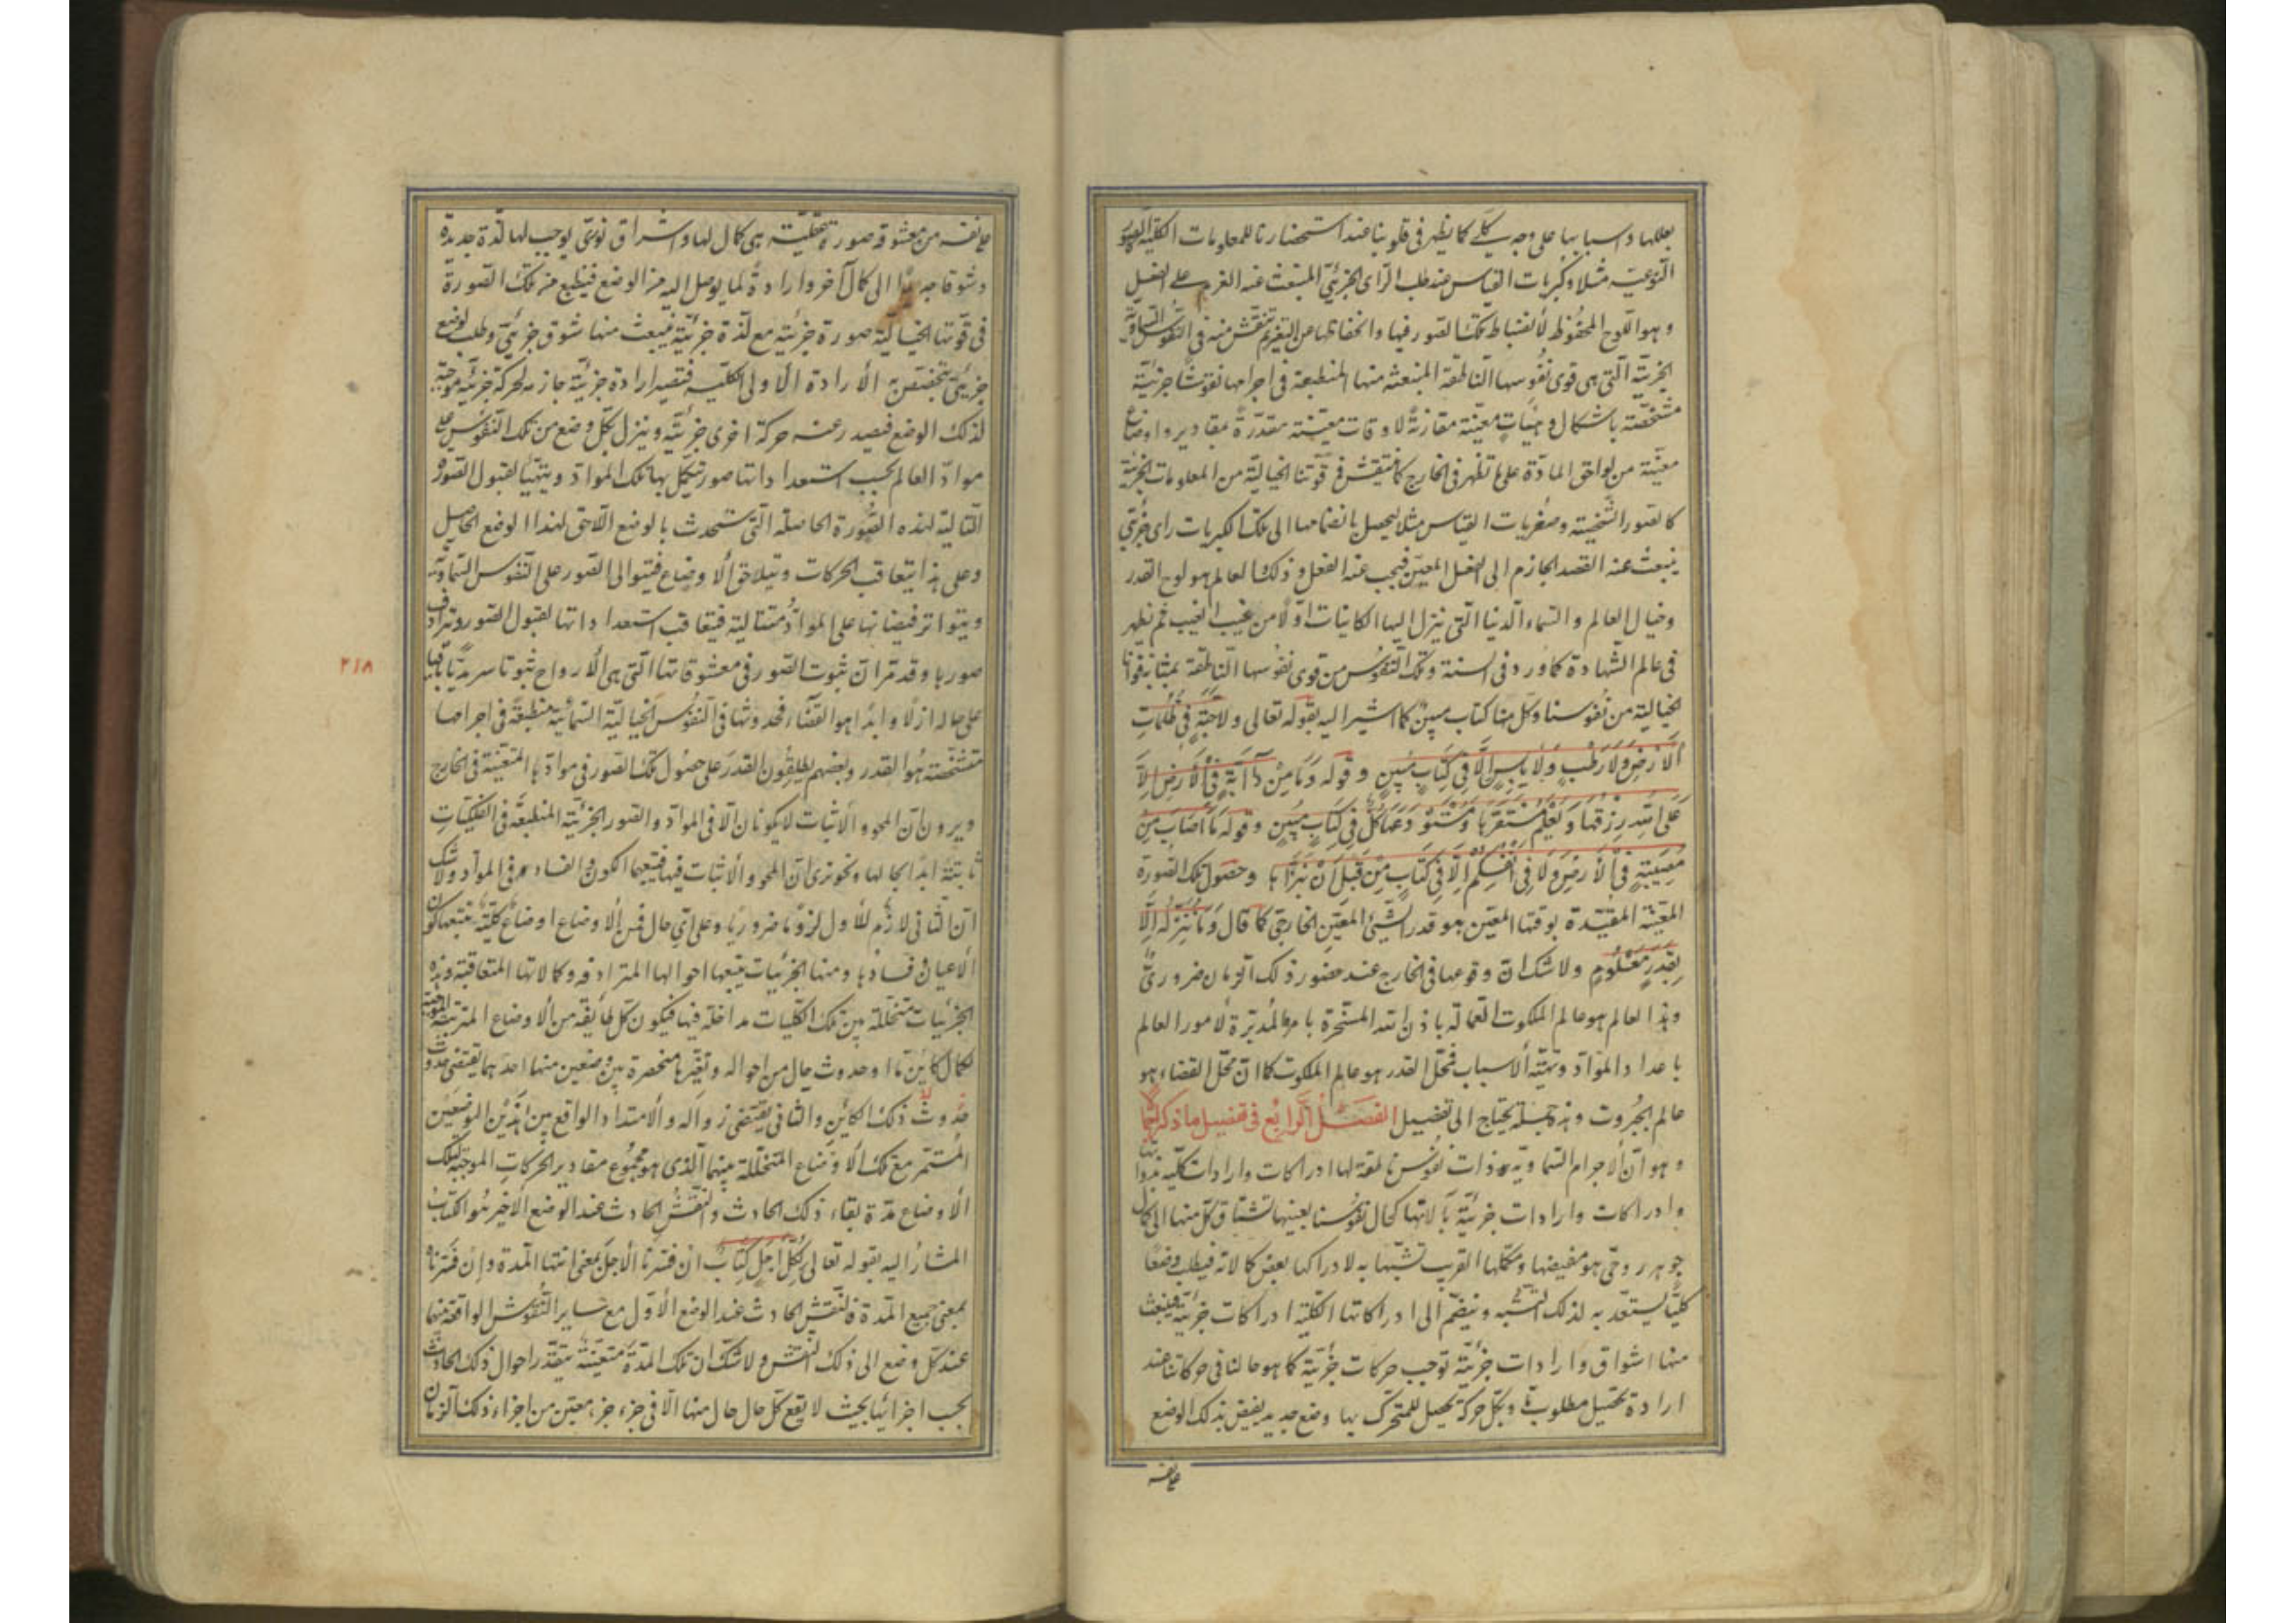 بعللها واسبابها على وجه كلي كما يظهر في قلوبنا عند استحضارنا للمعلومات الكلية كالصور
النوعية مثلا وكبريات القياس عند طلب الرأي الجزئي المنبعث عنه العزم على الفعل
وهو اللوح المحفوظ لانضباط تلك الصور فيها وانحفاظها عن التغير ثم تنتقش منه في النفوس السماوية
الجزئية التي هي قوى نفوسها الناطقة المنبعثة منها المنطبعة في اجرامها نقوشا جزئية
مشخصة باشكال وهيئات معينة مقارنة لاوقات معينة مقدرة بمقادير واوضاع
معينة من لواحق المادة على ما تظهر في الخارج كما ينتقش في قوتنا الخيالية من المعلومات الجزئية
كالصور الشخصية وصغريات القياس مثلا ليحصل بانضمامها الى تلك الكبريات رأي جزئي
ينبعث عنه القصد الجازم الى الفعل المعين فيجب عنه الفعل وذلك العالم هو لوح القدر
وخيال العالم والسماء الدنيا التي ينزل اليها الكاينات اولا من غيب الغيب ثم يظهر
في عالم الشهادة كما ورد في السنة وتلك النفوس من قوى نفوسها الناطقة بمثابة قوانا
الخيالية من نفوسنا وكل منها كتاب مبين كما اشير اليه بقوله تعالى ولا حبة في ظلمات
الارض ولا رطب ولا يابس الا في كتاب مبين وقوله وما من دابة في الارض الا
على الله رزقها ويعلم مستقرها ومستودعها كل في كتاب مبين وقوله ما اصاب من
مصيبة في الارض ولا في انفسكم الا في كتاب من قبل ان نبرأها وحصول تلك الصورة
المعينة المقيدة بوقتها المعين هو قدر الشيئ المعين الخارجي كما قال وما ننزله الا
بقدر معلوم ولا شك ان وقوعها في الخارج عند حضور ذلك الزمان ضروري
وهذا العالم هو عالم الملكوت العمالة باذن الله المسخرة بامره المدبرة لامور العالم
باعداد المواد وتهيئة الاسباب فمحل القدر هو عالم الملكوت كما ان محل القضاء هو
عالم الجبروت وهذه جملة يحتاج الى تفصيل الفصل الرابع في تفصيل ما ذكر
وهو ان الاجرام السماوية ذوات نفوس ناطقة لها ادراكات وارادات كلية بذواتها
وادراكات وارادات جزئية بآلاتها كحال نفوسنا بعينها تشتاق كل منها الى كمال
جوهر روحي هو مفيضها ومكملها القريب تشبها به لادراكها بعض كمالاته فيطلب وضعا
كليا يستعد به لذلك التشبه وينضم الى ادراكاتها الكلية ادراكات جزئية فينبعث
منها اشواق وارادات جزئية توجب حركات جزئية كما هو حالنا في حركاتنا عند
ارادة تحصيل مطلوب وبكل حركة يحصل للمتحرك بها وضع جديد يفيض بذلك الوضع
على نفسه
على نفسه من معشوقه صورة عقلية هي كمال لها واشراق نوري يوجب لها لذة جديدة
وشوقا جديدا الى كمال آخر وارادة لما يوصل اليه من الوضع فينطبع من تلك الصورة
في قوتها الخيالية صورة جزئية مع لذة جزئية فينبعث منها شوق جزئي وطلب لوضع
جزئي بتخصص الارادة الاولى الكلية فتصير ارادة جزئية جازمة لحركة جزئية موجبة
لذلك الوضع فيصدر عنه حركة اخرى جزئية وينزل بكل وضع من تلك النفوس على
مواد العالم بحسب استعداداتها صور تتكمل بها تلك المواد ويتهيأ لقبول الصور
التالية لهذه الصورة الحاصلة التي ستحدث بالوضع اللاحق لهذا الوضع الحاصل
وعلى هذا يتعاقب الحركات وتتلاحق الاوضاع فيتوالى الصور على النفوس السماوية
ويتواتر فيضانها على المواد متتالية فيتعاقب استعداداتها لقبول الصور وترادف
صورها وقد مر ان ثبوت الصور في معشوقاتها التي هي الارواح ثبوتا سرمديا باقيا
على حاله ازلا وابدا هو القضاء فحدوثها في النفوس الخيالية السمائية منطبعة في اجرامها
متشخصة هو القدر وبعضهم يطلقون القدر على حصول تلك الصور في موادها المتعينة في الخارج
ويرون ان المحو والاثبات لا يكونان الا في المواد والصور الجزئية المنطبعة في الفلكيات
ثابتة ابدا بحالها ونحو نرى ان المحو والاثبات فيها فيتبعهما الكون والفساد في المواد ولا شك
ان الثاني لازم للاول لزوما ضروريا وعلى اي حال فمن الاوضاع اوضاع كلية يتبعها كون
الاعيان وفسادها ومنها الجزئيات يتبعها احوالها المترادفة وكمالاتها المتعاقبة وهذه
الجزئيات متخللة بين تلك الكليات مداخلة فيها فيكون كل طايفة من الاوضاع المترتبة الموجبة
لكمال كاين ما او حدوث حال من احواله وتغيرها منحصرة بين وضعين منها احدهما يقتضي حدوث
حدوث ذلك الكاين والثاني يقتضي زواله والامتداد الواقع بين هذين الوضعين
المستمر مع تلك الاوضاع المتخللة بينهما الذي هو مجموع مقادير الحركات الموجبة لتلك
الاوضاع مدة بقاء ذلك الحادث والنقش الحادث عند الوضع الاخير هو الكتاب
المشار اليه بقوله تعالى لكل اجل كتاب ان فسرنا الاجل بمعنى انتهاء المدة وان فسرناه
بمعنى جميع المدة فالنقش الحادث عند الوضع الاول مع ساير النقوش الواقعة منها
عند كل وضع الى ذلك النقش ولا شك ان تلك المدة متعينة يتقدر احوال ذلك الحادث
بحسب اجزائها بحيث لا يقع كل حال حال منها الا في جزء جزء معين من اجزاء ذلك الزمان
٢١٨